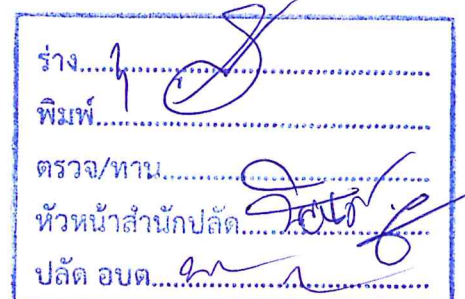 ร่าง
พิมพ์
ตรวจ/ทาน
หัวหน้าสำนักปลัด
ปลัด อบต.